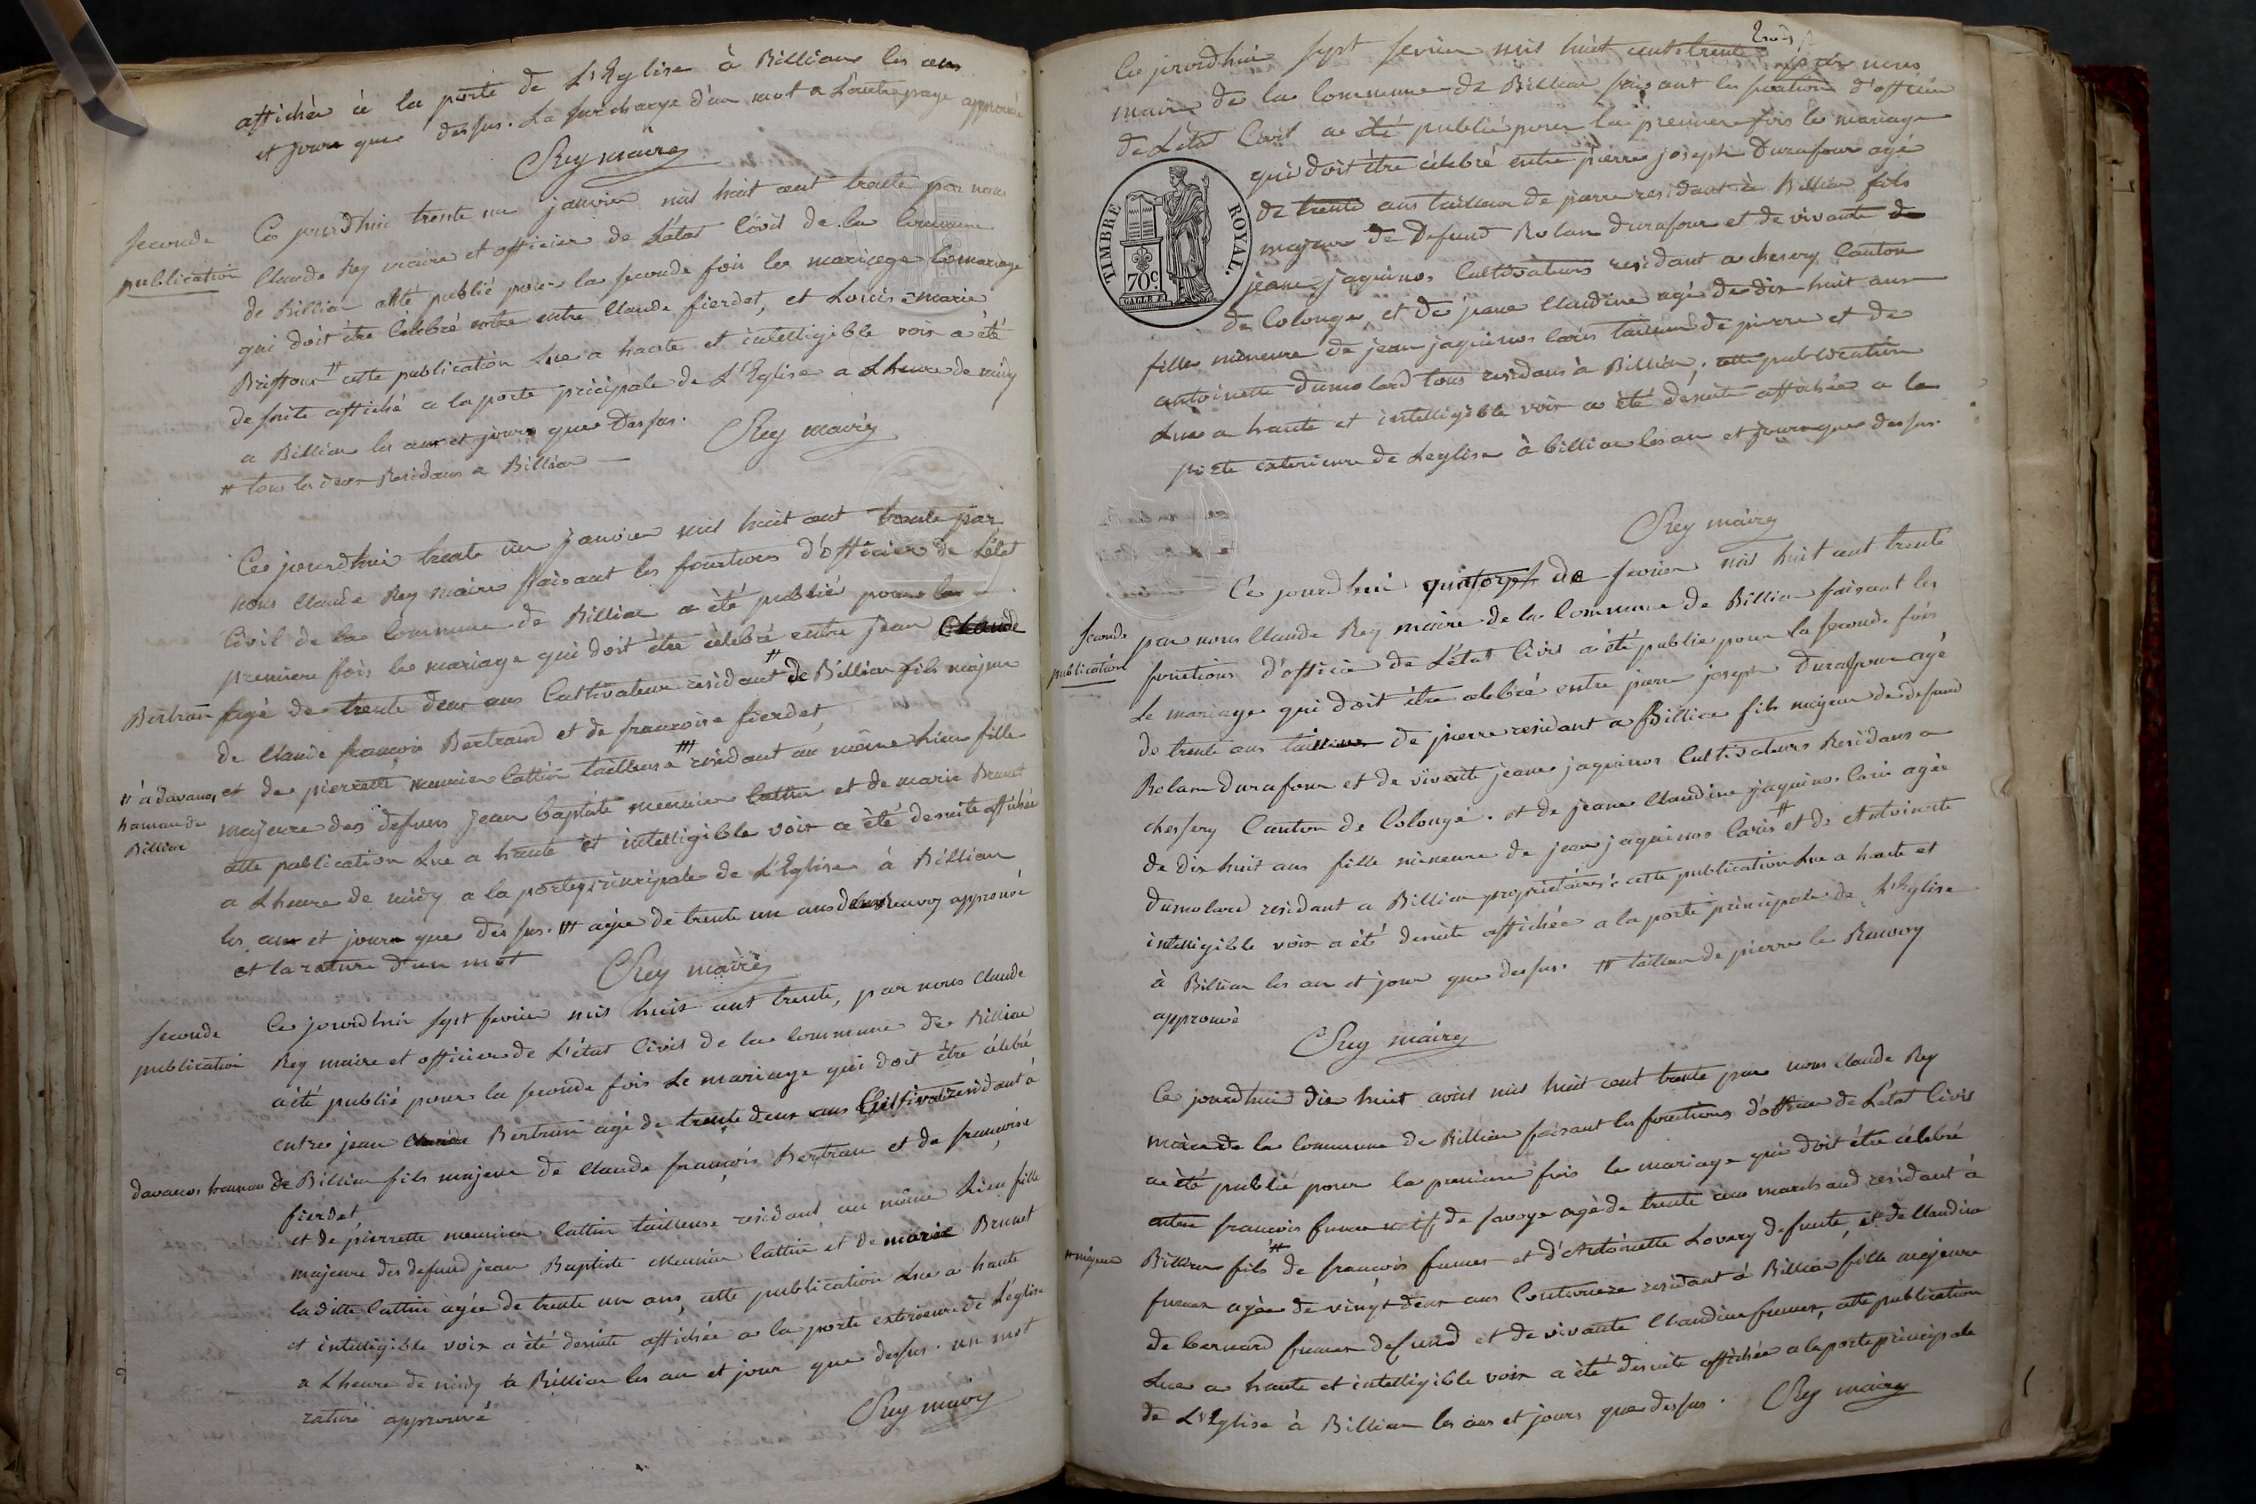 affichée à la porte de L'Eglise à Billiau les an
et jour que dessus. La surcharge d'un mot a L'autre page approuvée
Rey maire
Seconde
publication
Ce jourdhui trente un janvier mil huit cent trente par nous
Claude Rey maire et officier de L'état Civil de la Commune
de Billiau a été publié pour la seconde fois le mariage le mariage
qui doit être célébré entre entre Claude fierdet, et Louis marie
Briffour # cette publication Lue a haute et intelligible voix a été
de suite affiché a la porte principale de L'Eglise a Lheure de midy
a Billiau les an et jour que Dessus. Rey maire
# tous les deux Residans a Billiau
Ce jourdhui trente un janvier mil huit cent trente par
nous Claude Rey maire faisant les fonctions d'officier de L'état
Civil de la Commune de Billiau a été publié pour la
premiere fois le mariage qui doit être célébré entre jean Claude
Bertran agé de trente deux ans Cultivateur residant # de Billiau fils majeur
de Claude françois Bertrand et de françoise fierdet,
# a davanos
hameau de
Billiau
et de pierrette meunier Cattin tailleuse ### residant au même lieu fille
majeure des defuns jean baptiste meunier Cattin et de marie Brunet
cette publication Lue a haute et intelligible voix a été de suite affichée
a Lheure de midy a la porte principale de L'Eglise à Billiau
les an et jour que dessus. ### agée de trente un ans deux Renvoy approuvé
et la rature d'un mot Rey maire
Seconde
publication
Ce jourdhui sept fevrier mil huit cent trente, par nous Claude
Rey maire et officier de L'état Civil de la Commune de Billiau
a été publié pour la seconde fois Le mariage qui doit être célébré
entre jean Bertran agé de trente deux ans Cultivat residant a
davanos hameau de Billiau fils majeur de Claude françois Bertran et de françoise
fierdet
et de pierrette meunier Cattin tailleuse residant au même Lieu fille
majeure des defund jean Baptiste meunier Cattin et de marie Brunet
La ditte Cattin agée de trente un ans, cette publication Lue a haute
et intelligible voix a été de suite affichée a la porte exterieure de L'église
a Lheure de midy a Billiau les an et jour que dessus. un mot
raturé approuvé Rey maire
Ce jourdhui sept fevrier mil huit cent trente par nous
maire de la Commune de Billiau faisant les fonctions d'officier
de L'état Civil a été publié pour la premiere fois le mariage
qui doit être célébré entre pierre joseph Durafour agé
de trente ans tailleur de pierre residant à Billiau fils
majeur de Defund Rolan Durafour et de vivante de
jeane jaquinos Cultivateurs residant a chesery Canton
de Colonge, et de jeane Claudine agée de dix huit ans
fille mineure de jean jaquinos Caris tailleur de pierre et de
antoinette dumolard tous residans à Billiau; cette publication
Lue a haute et intelligible voix a été de suite affichée a la
porte exterieure de Leglise à billiau les an et jour que dessus.
TIMBRE ROYAL.
70c
Rey maire
Seconde
publication
Ce jourdhui quatorze de fevrier mil huit cent trente
par nous Claude Rey maire de la Commune de Billiau faisant les
fonctions d'officier de L'état Civil a été publié pour la seconde fois
Le mariage qui doit être célébré entre pierre joseph Durafour agé
de trente ans tailleur de pierre residant a Billiau fils majeur de defund
Rolan Durafour et de vivente jeane jaquinos Cultivateurs Residans a
chessery Canton de Colonge. et de jeane Claudine jaquinos Caris agée
de dix huit ans fille mineure de jean jaquinos Caris # et de Antoinette
dumolard residant a Billiau propriétaires: cette publication Lue a haute et
intelligible voix a été de suite affichée a la porte principale de L'Eglise
à Billiau les an et jour que dessus. # tailleur de pierre le Renvoy
approuvé
Rey maire
Ce jourdhui dix huit avril mil huit cent trente par nous Claude Rey
maire de la Commune de Billiau faisant les fonctions d'officier de L'état Civil
a été publié pour la premiere fois le mariage qui doit être célébré
entre françois fumex natif de savoye agé de trente ans marchand résidant à
# majeur
Billiau fils # de françois fumex et d'Antoinette Lovery defunte, et de Claudine
fumex agée de vingt deux ans Couturiere residant à Billiau fille majeure
de bernard fumex defund et de vivante Claudine fumex, cette publication
Lue a haute et intelligible voix a été de suite affichée a la porte principale
de L'Eglise à Billiau les ans et jours que dessus. Rey maire